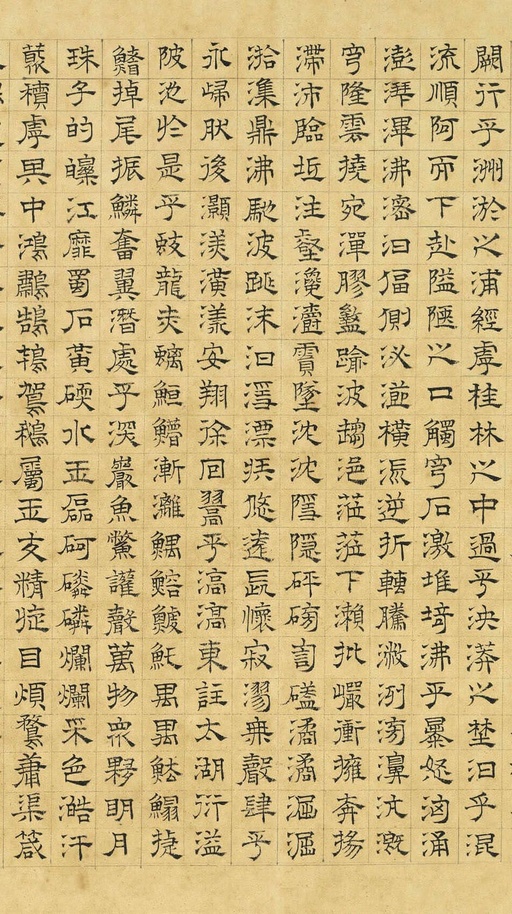 闕行乎洲淤之浦經虖桂林之中過乎泱莽之壄汩乎混
流順阿而下赴隘陿之口觸穹石激堆埼沸乎暴怒洶涌
澎湃滭沸滵汩偪側泌瀄橫流逆折轉騰潎洌滂濞沆溉
穹隆雲撓宛潬膠盭踰波趨浥蒞蒞下瀨批巖衝擁奔揚
滯沛臨坻注壑瀺灂霣墜沈沈隱隱砰磅訇磕潏潏淈淈
湁潗鼎沸馳波跳沫汩㴔漂疾悠遠長懷寂漻無聲肆乎
永歸肰後灝溔潢漾安翔徐回翯乎滈滈東注太湖衍溢
陂池於是乎蛟龍赤螭䱭䲛漸灕鰅鰫鰬魠禺禺魼鰨揵
鰭掉尾振鱗奮翼潛處乎深巖魚鱉讙聲萬物眾夥明月
珠子的皪江靡蜀石黃碝水玉磊砢磷磷爛爛采色澔汗
藂積虖其中鴻鷫鵠鴇鴐鵝屬玉交精旋目煩鶩庸渠箴